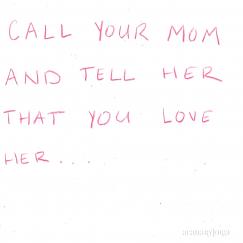 CALL YOUR MOM
AND TELL HER
THAT YOU LOVE
HER....